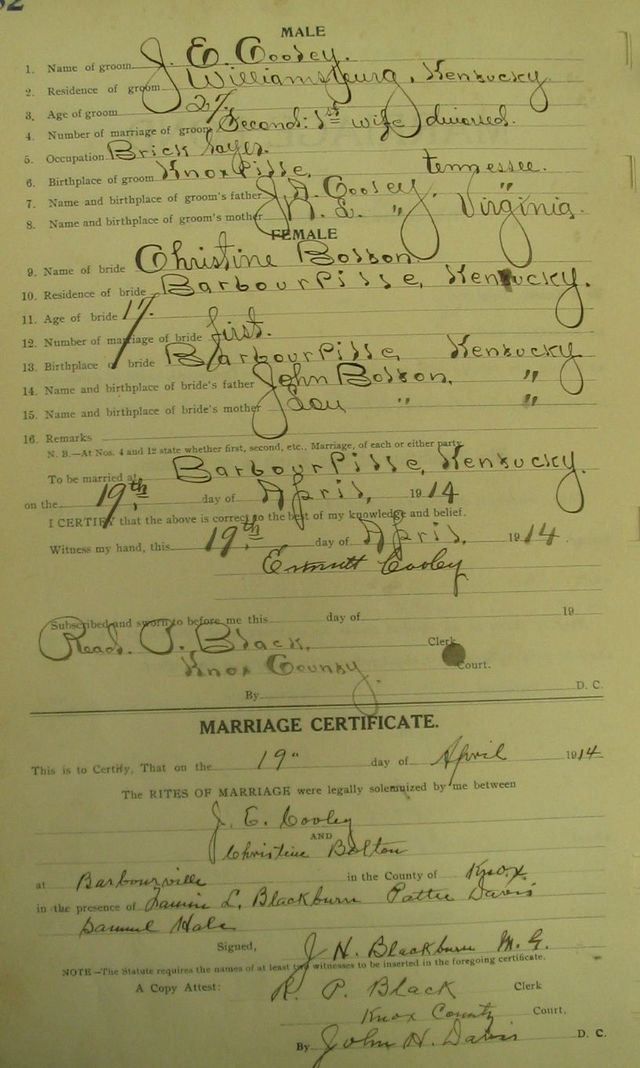 MALE
1. Name of groom J. E. Cooley.
2. Residence of groom Williamsburg, Kentucky
3. Age of groom 27.
4. Number of marriage of groom Second: 1st wife divorced.
5. Occupation Brick layer.
6. Birthplace of groom Knoxville, Tennessee.
7. Name and birthplace of groom's father J. A. Cooley, "
8. Name and birthplace of groom's mother " Virginia.
FEMALE
9. Name of bride Christine Bolton.
10. Residence of bride Barbourville, Kentucky.
11. Age of bride 17.
12. Number of marriage of bride first.
13. Birthplace of bride Barbourville, Kentucky
14. Name and birthplace of bride's father John Bolton, "
15. Name and birthplace of bride's mother Lou " "
16. Remarks
N. B.—At Nos. 4 and 12 state whether first, second, etc., Marriage, of each or either party.
To be married at Barbourville, Kentucky.
on the 19th. day of April, 1914
I CERTIFY that the above is correct to the best of my knowledge and belief.
Witness my hand, this 19th. day of April, 1914.
Emmett Cooley
Subscribed and sworn to before me this day of 19
Read. P. Black, Clerk
Knox County Court.
By D. C.
MARRIAGE CERTIFICATE.
This is to Certify, That on the 19" day of April 1914
The RITES OF MARRIAGE were legally solemnized by me between
J. E. Cooley
AND
Christine Bolton
at Barbourville in the County of Knox
in the presence of L. Blackburn Pattie Davis
Samuel Hale
Signed, J H. Blackburn M. G.
NOTE—The Statute requires the names of at least two witnesses to be inserted in the foregoing certificate.
A Copy Attest: R. P. Black Clerk
Knox County Court,
By John H. Davis D. C.